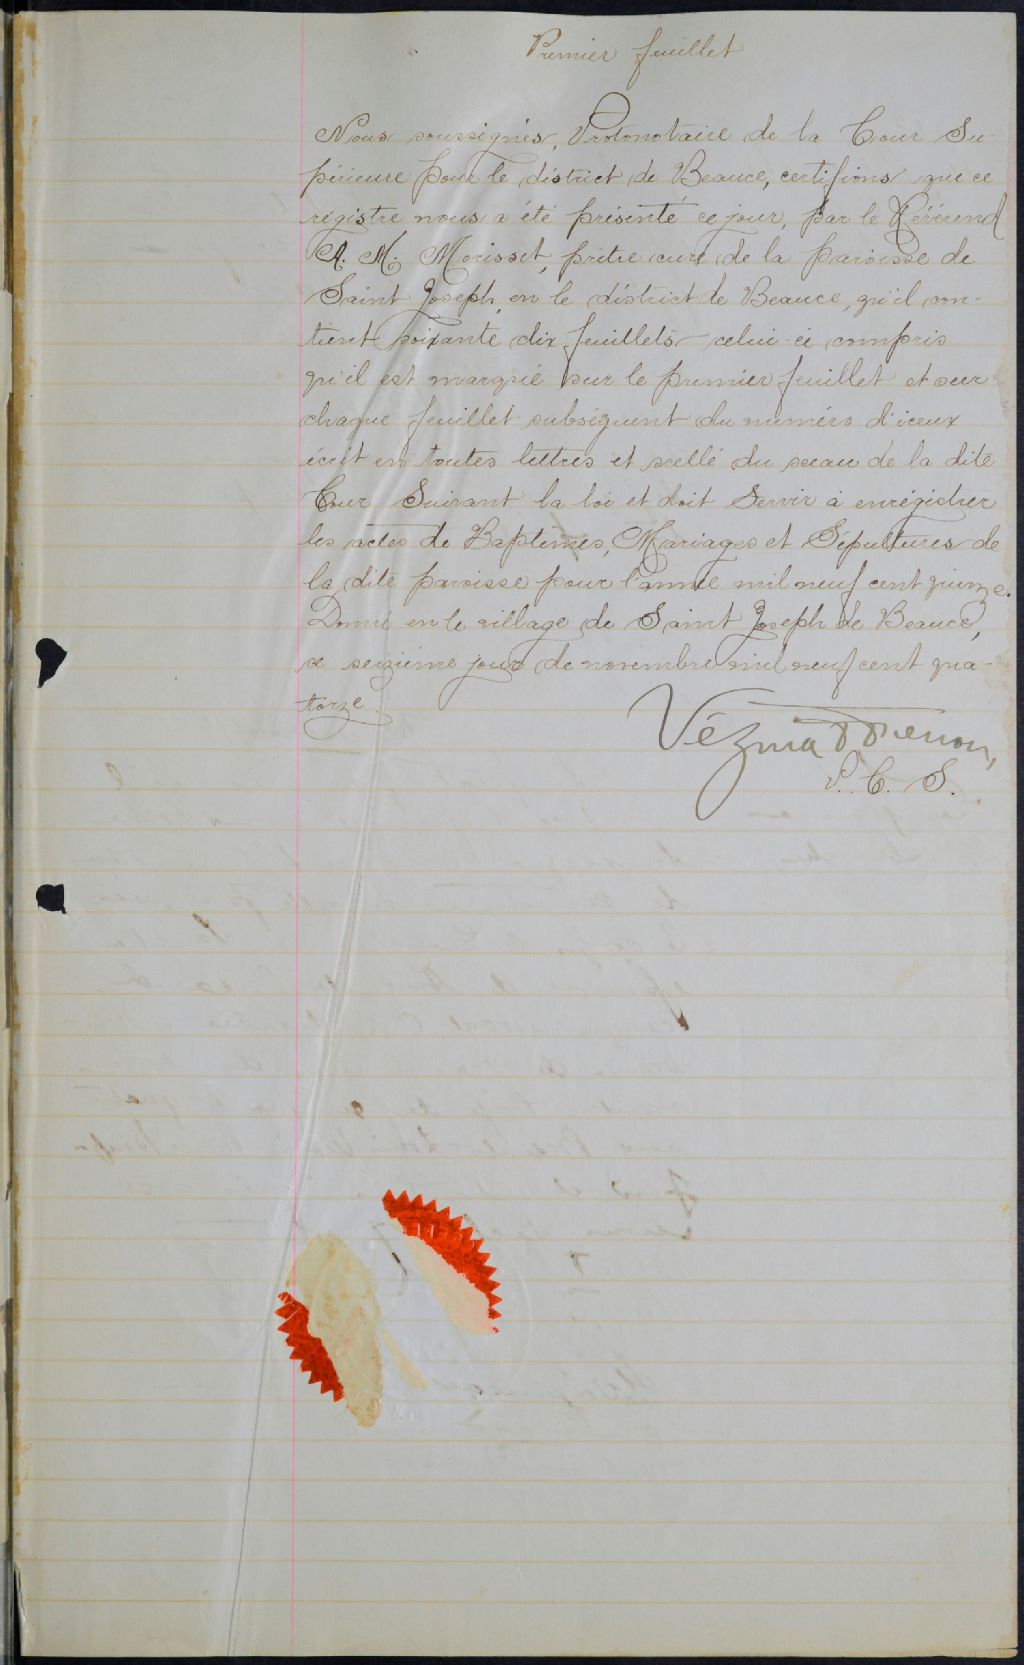 Premier feuillet
Nous soussignés, Protonotaire de la Cour Su-
périeure pour le district de Beauce, certifions que ce
régistre nous a été présenté ce jour, par le Révérend
A. M. Morisset, prêtre curé de la paroisse de
Saint Joseph, en le district de Beauce, qu'il con-
tient soixante dix feuillets - celui-ci compris
qu'il est marqué sur le premier feuillet et sur
chaque feuillet subséquent du numéro d'iceux
écrit en toutes lettres et scellé du sceau de la dite
Cour Suivant la loi et doit Servir à enrégistrer
les actes de Baptêmes, Mariages et Sépultures de
la dite paroisse pour l'année mil neuf cent quinze.
Donné en le village de Saint Joseph de Beauce,
ce seizième jour de novembre mil neuf cent qua-
torze
Vézina
P. C. S.